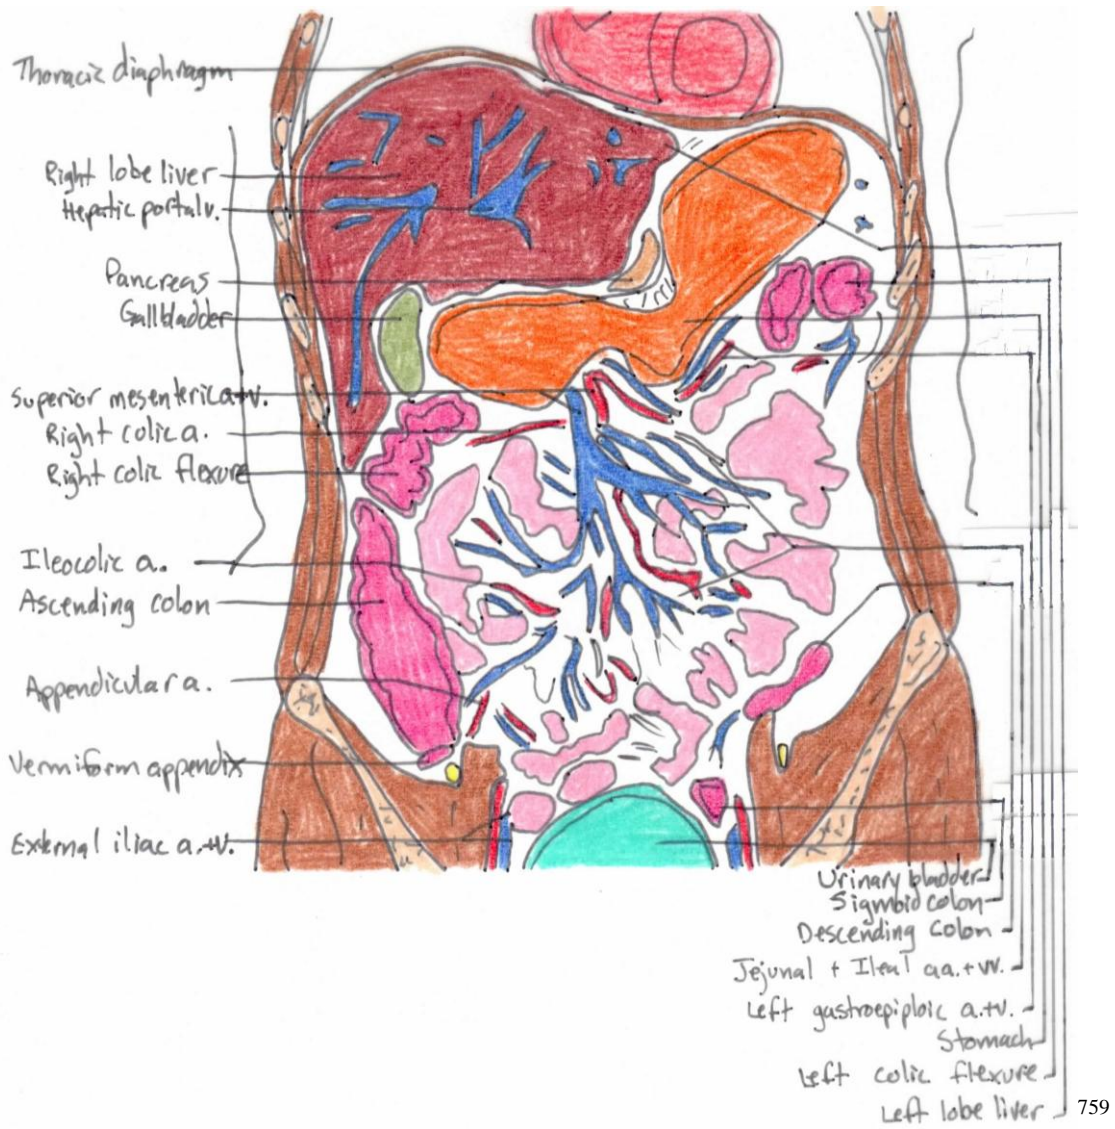 Thoracic diaphragm
Right lobe liver
Hepatic portal v.
Pancreas
Gallbladder
Superior mesenteric a+v.
Right colic a.
Right colic flexure
Ileocolic a.
Ascending colon
Appendicular a.
Vermiform appendix
External iliac a.+v.
Urinary bladder
Sigmoid colon
Descending colon
Jejunal + Ileal aa.+vv.
Left gastroepiploic a.+v.
Stomach
Left colic flexure
Left lobe liver
759